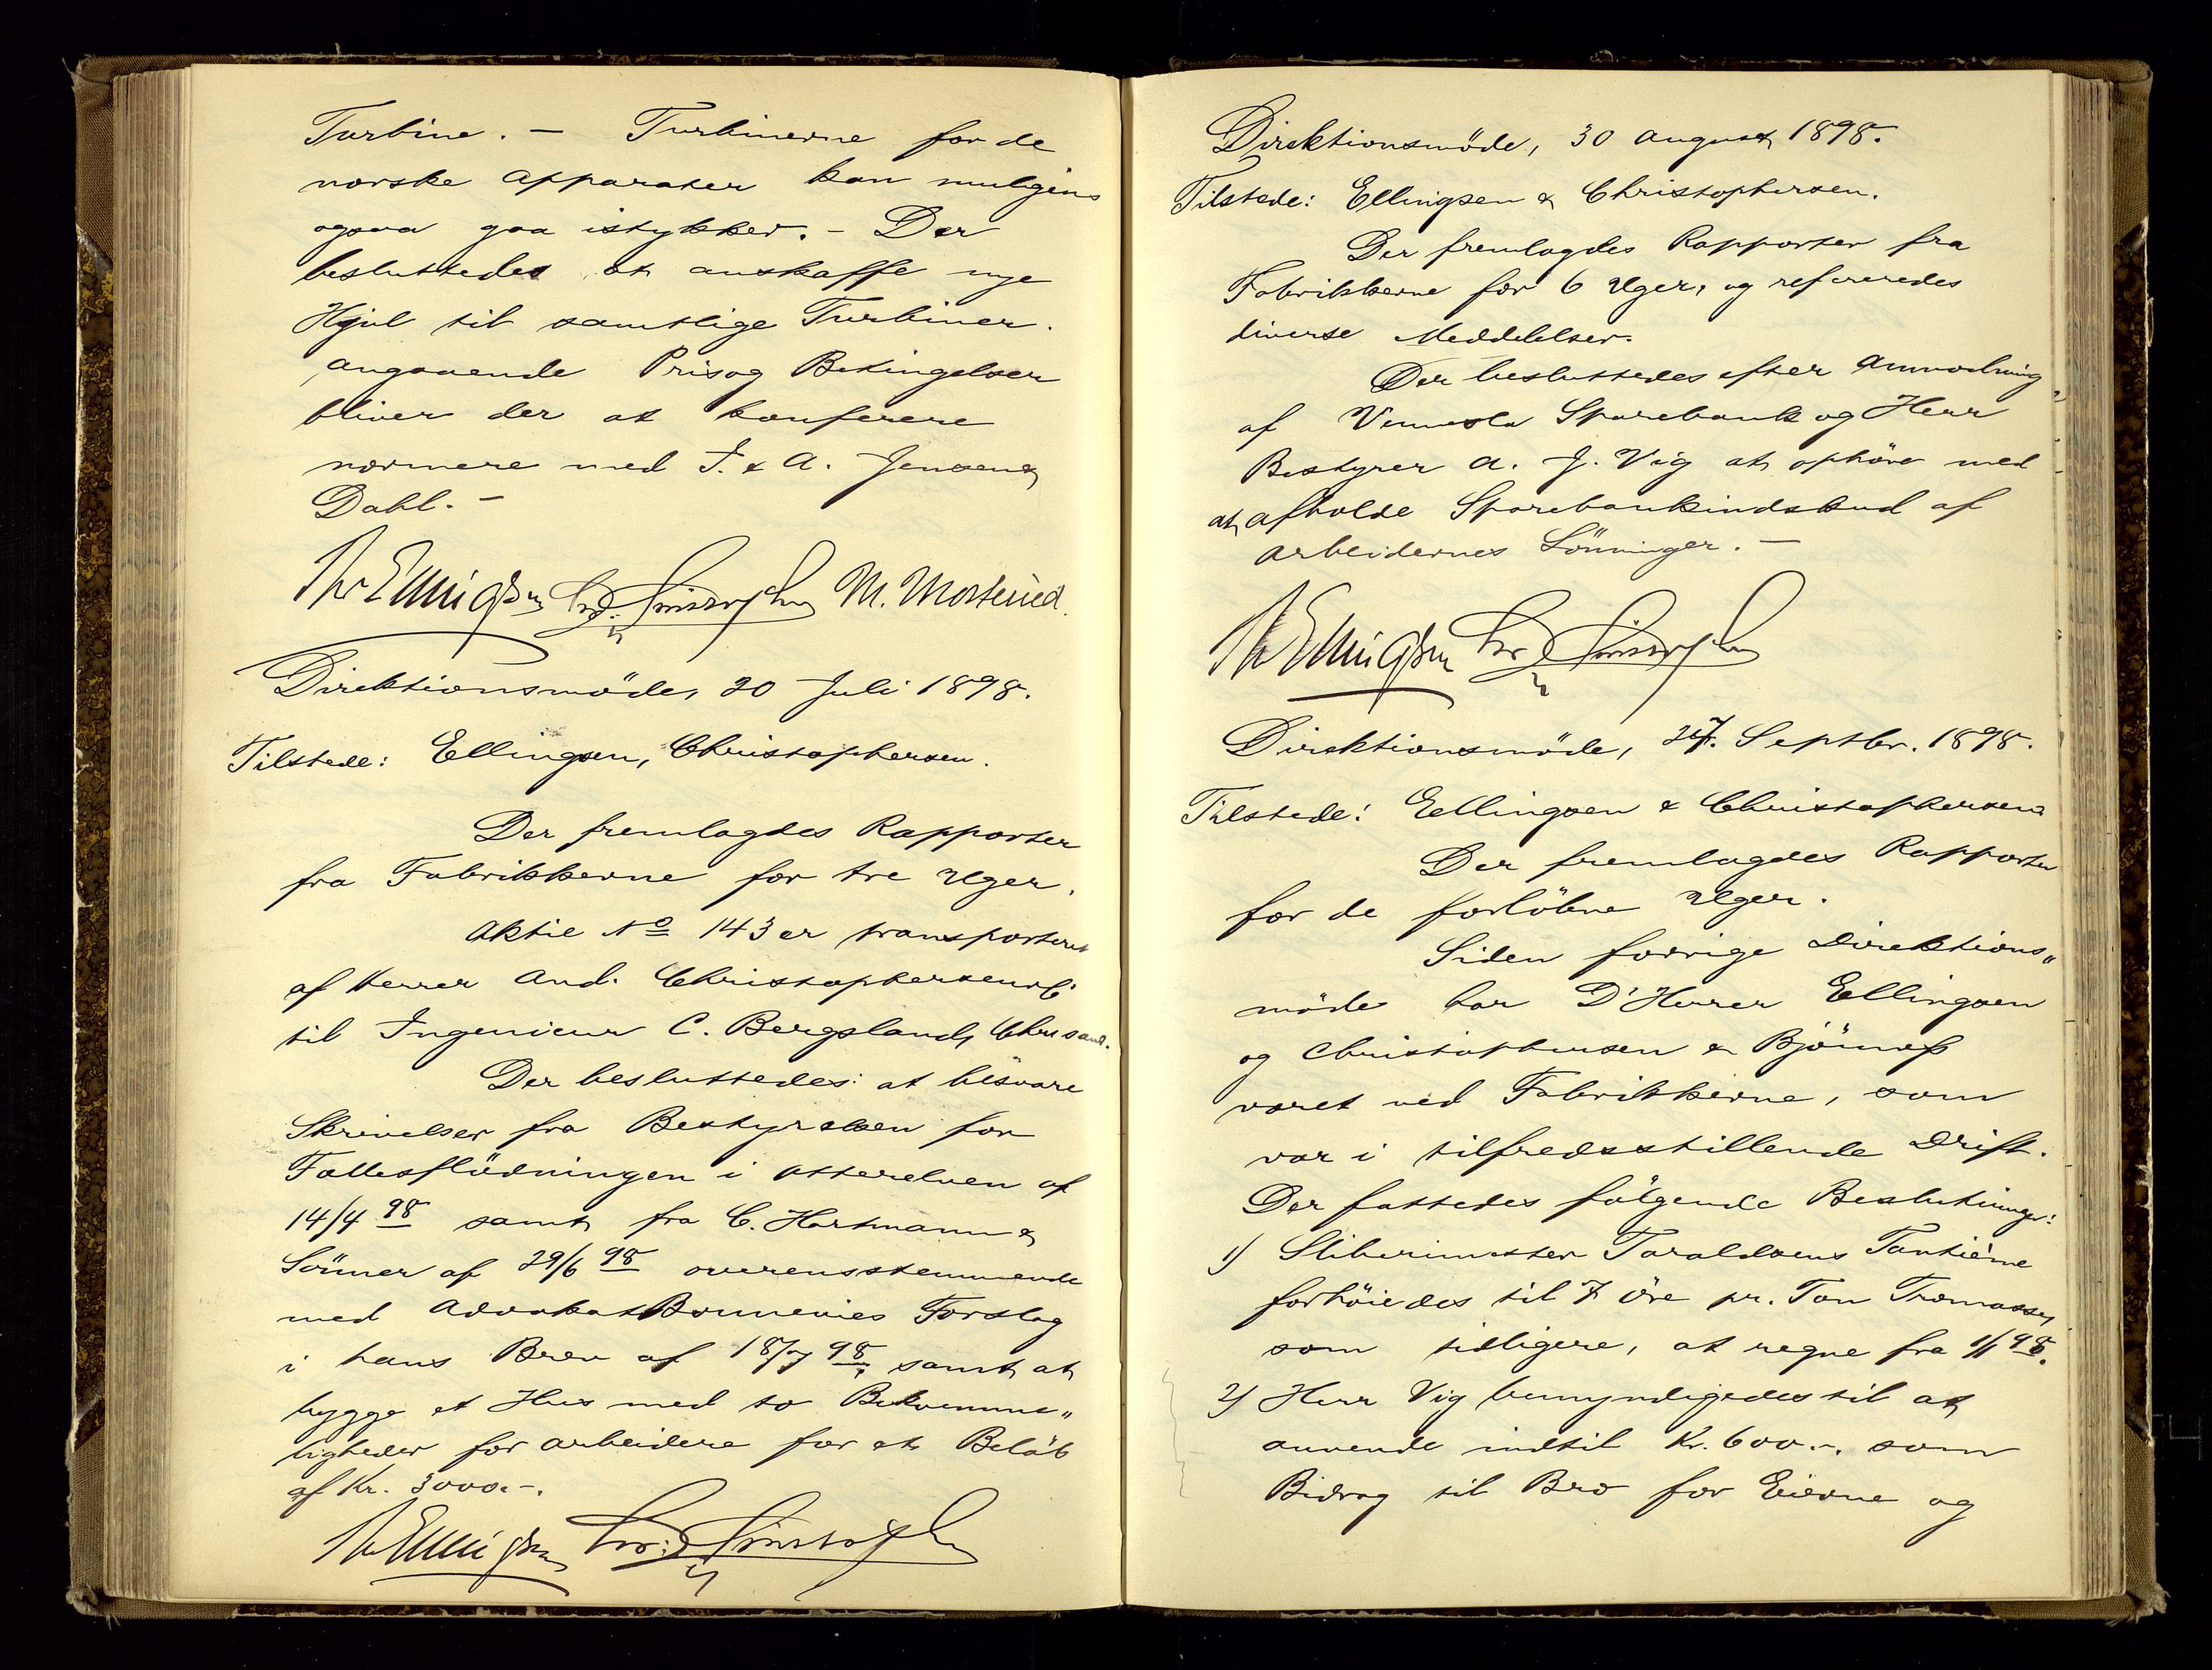 Turbine. — Turbinerne for de
norske Apparater kan muligens
ogsaa gaa istykker. - Der
besluttedes at anskaffe nye
Hjul til samtlige Turbiner.
Angaaende Pris og Betingelser
bliver der at konferere
nærmere med J. & A. Jensen &
Dahl. —
Th Ellingsen And. Christophersen M. Mosteried
Direktionsmöde, 20 Juli 1898.
Tilstede: Ellingsen, Christophersen.
Der fremlagdes Rapporter
fra Fabrikkerne for tre Uger.
Aktie No 143 er transporteret
af Herrer And. Christophersen & C
til Ingenieur C. Bergsland, Chrsand.
Der besluttedes: at besvare
Skrivelser fra Bestyrelsen for
Fællesflödningen i Otterelven af
14/4 98 samt fra C. Hartmann &
Sönner af 29/6 98 overensstemmende
med Advokat Bonnevies Forslag
i hans Brev af 18/7 98, samt at
bygge et Hus med to Bekvemme„
ligheder for Arbeidere for et Belöb
af Kr. 3000.-.
Th Ellingsen And. Christophersen
Direktionsmöde, 30 August 1898.
Tilstede: Ellingsen & Christophersen.
Der fremlagdes Rapporter fra
Fabrikkerne for 6 Uger, og refereredes
diverse Meddelelser.
Der besluttedes efter Anmodning
af Vennesla Sparebank og Herr
Bestyrer A. J. Vig at ophöre med
at afholde Sparebankindskud af
Arbeidernes Lönninger. —
Th Ellingsen And. Christophersen
Direktionsmöde, 27. Septbr. 1898.
Tilstede: Ellingsen & Christophersen
Der fremlagdes Rapporter
for de forlöbne Uger.
Siden forrige Direktions„
möde har D'Herrer Ellingsen
og Christophersen & Björneß
været ved Fabrikkerne, som
var i tilfredsstillende Drift.
Der fattedes fölgende Beslutninger:
1) Sliberimester Taraldsens Tantième
forhöiedes til 7 Öre pr. Ton Træmasse,
som tidligere, at regne fra 1/1 98.
2) Herr Vig bemyndigedes til at
anvende indtil Kr. 600.-. som
Bidrag til Bro for Eierne og